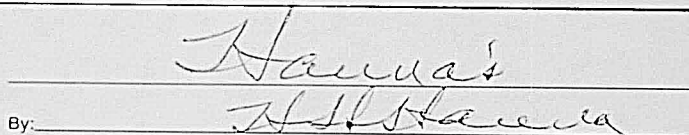 Hanna's
By: H H Hanna